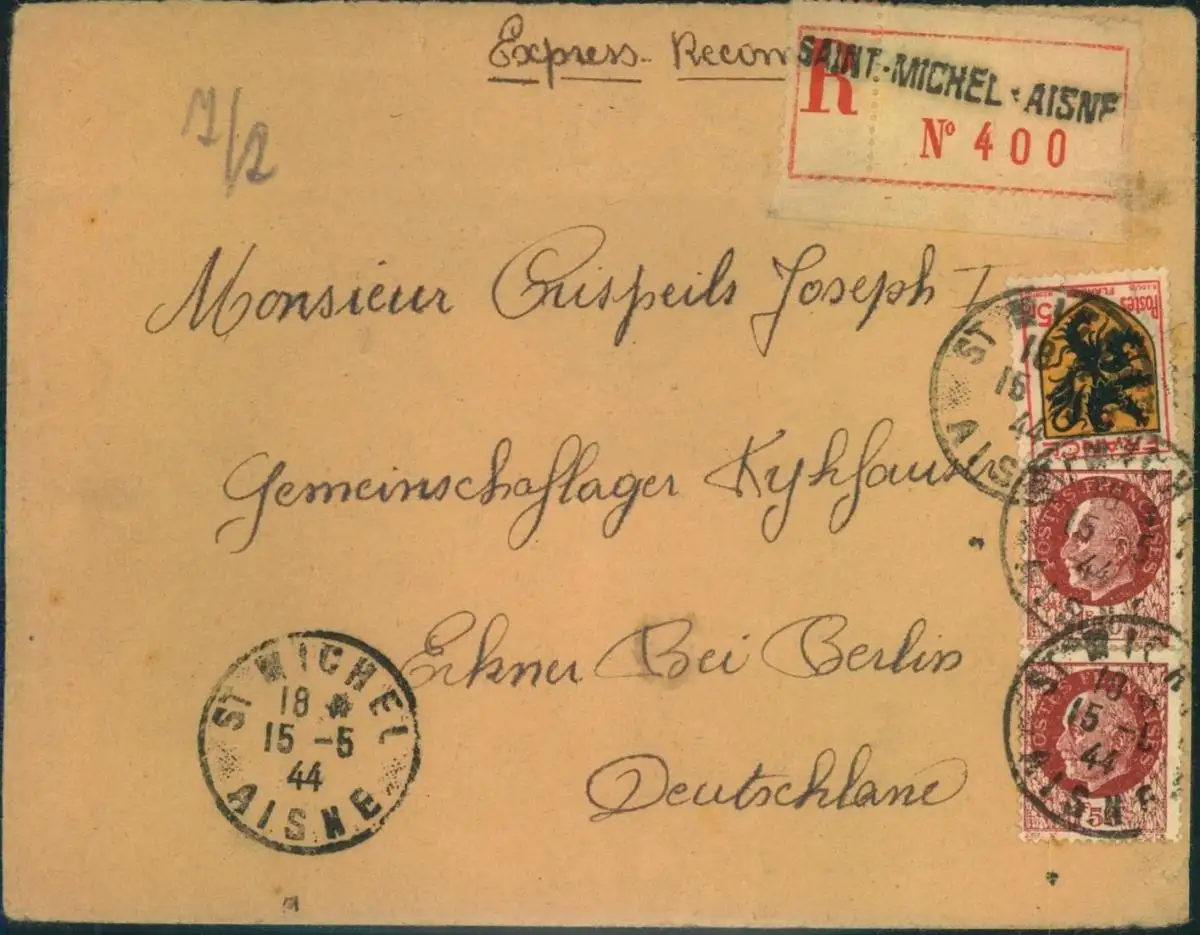 Express - Recom
SAINT-MICHEL - AISNE
R
N° 400
1/2
Monsieur Crispeils Joseph I
Gemeinschaflager Kykhauser
Erkner Bei Berlin
Deutschlane
Postes
5F
FRANCE
ST MICHEL
18 *
15 -5
44
AISNE
POSTES FRANÇAISES
ST MICHEL
18
15 -5
44
AISNE
POSTES FRANÇAISES
ST MICHEL
18 *
15 -5
44
AISNE